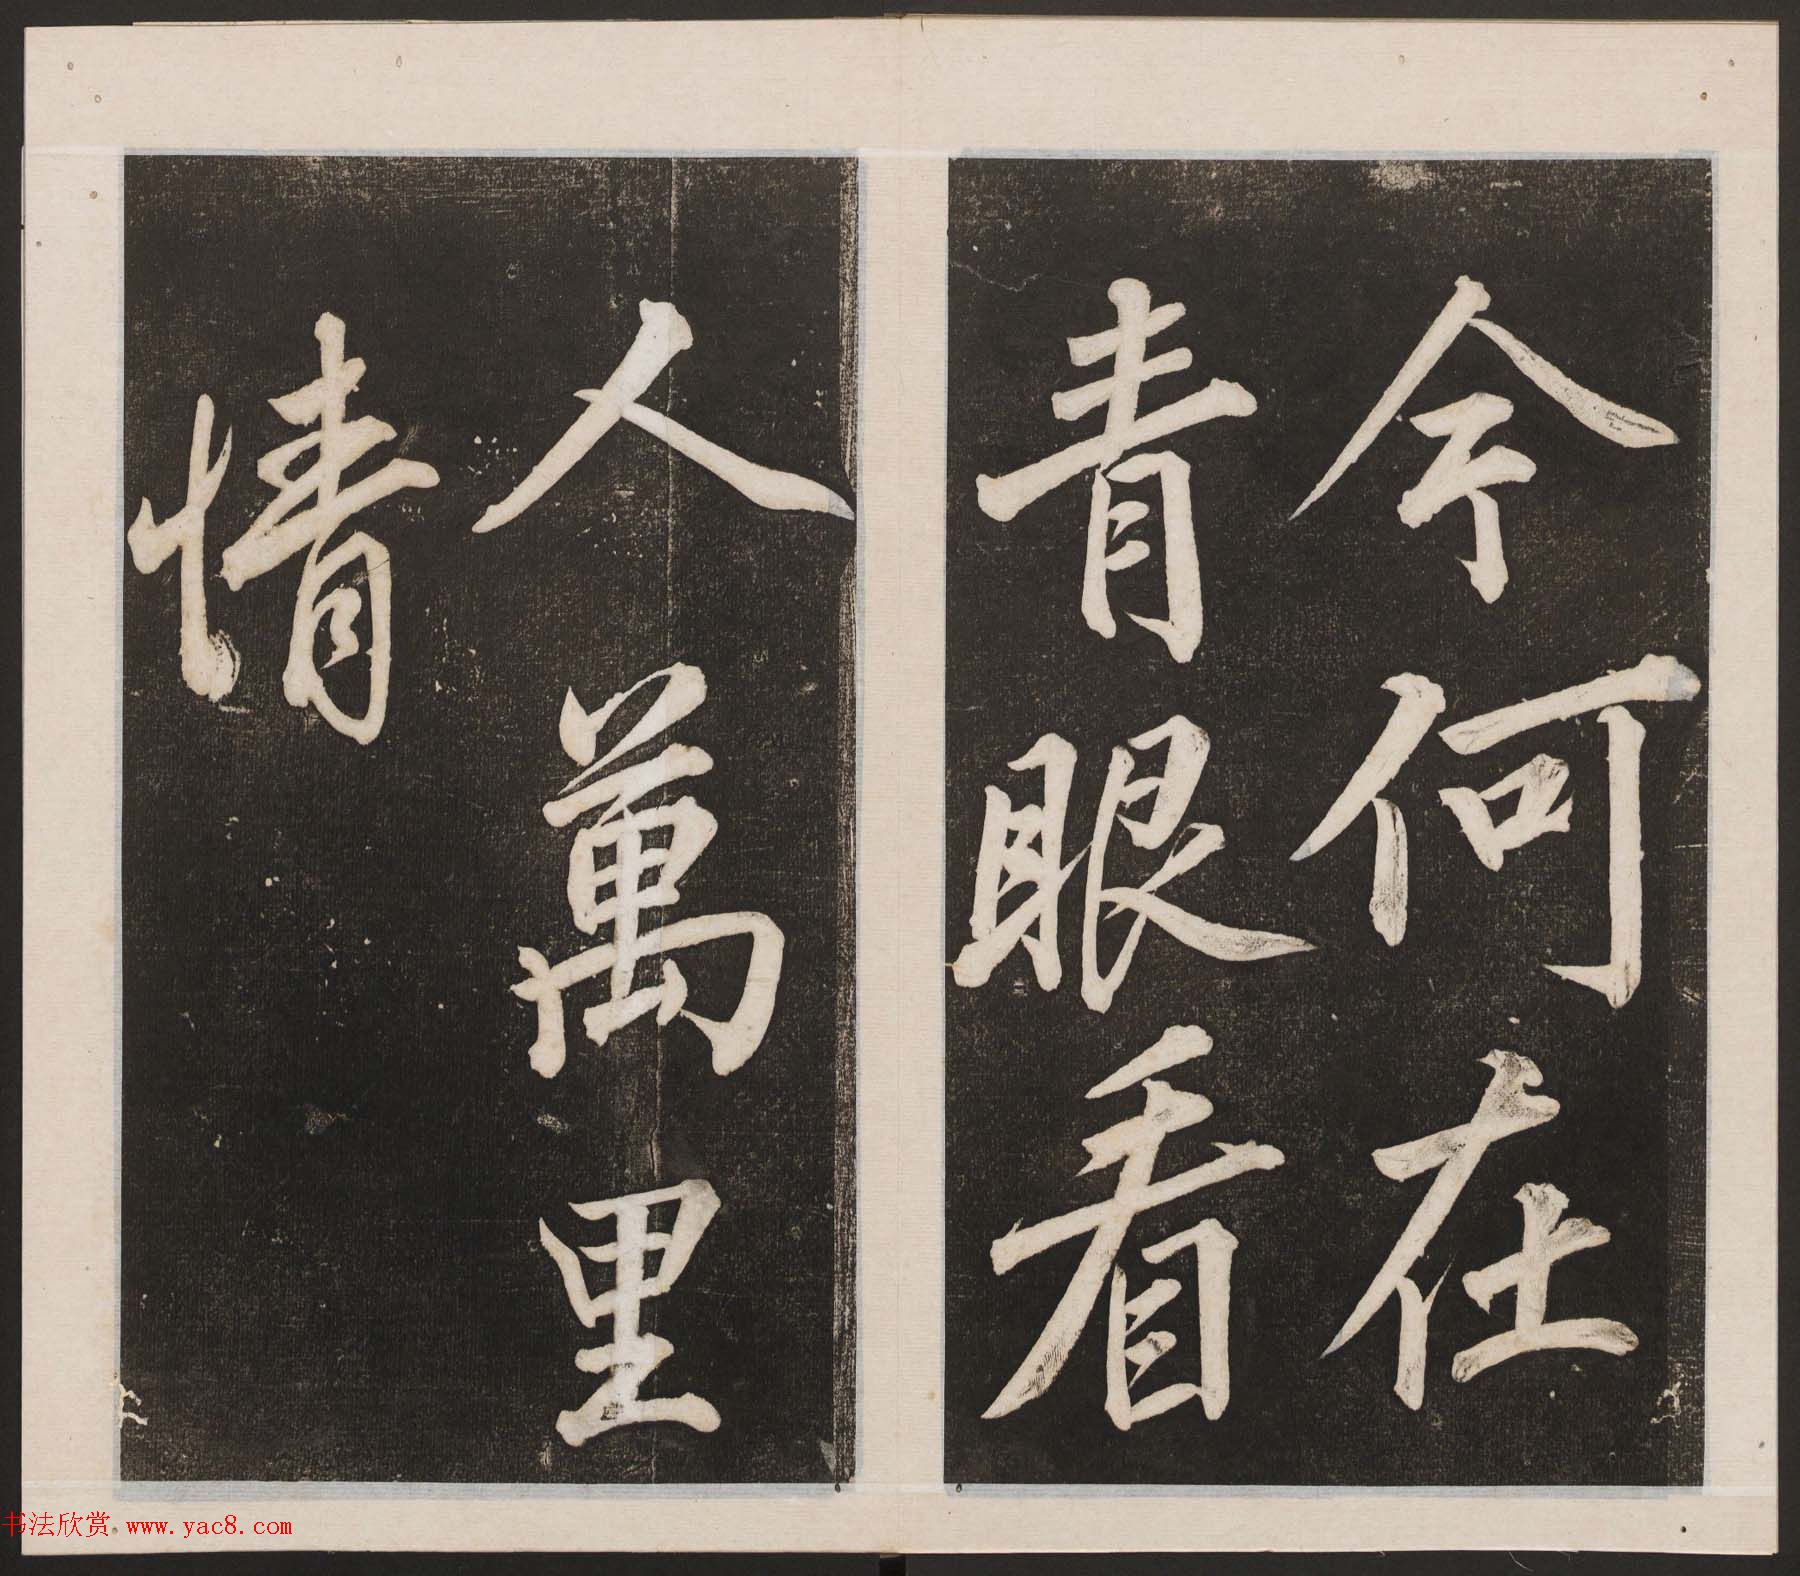 今何在
青眼看
人萬里
情
书法欣赏 www.yac8.com